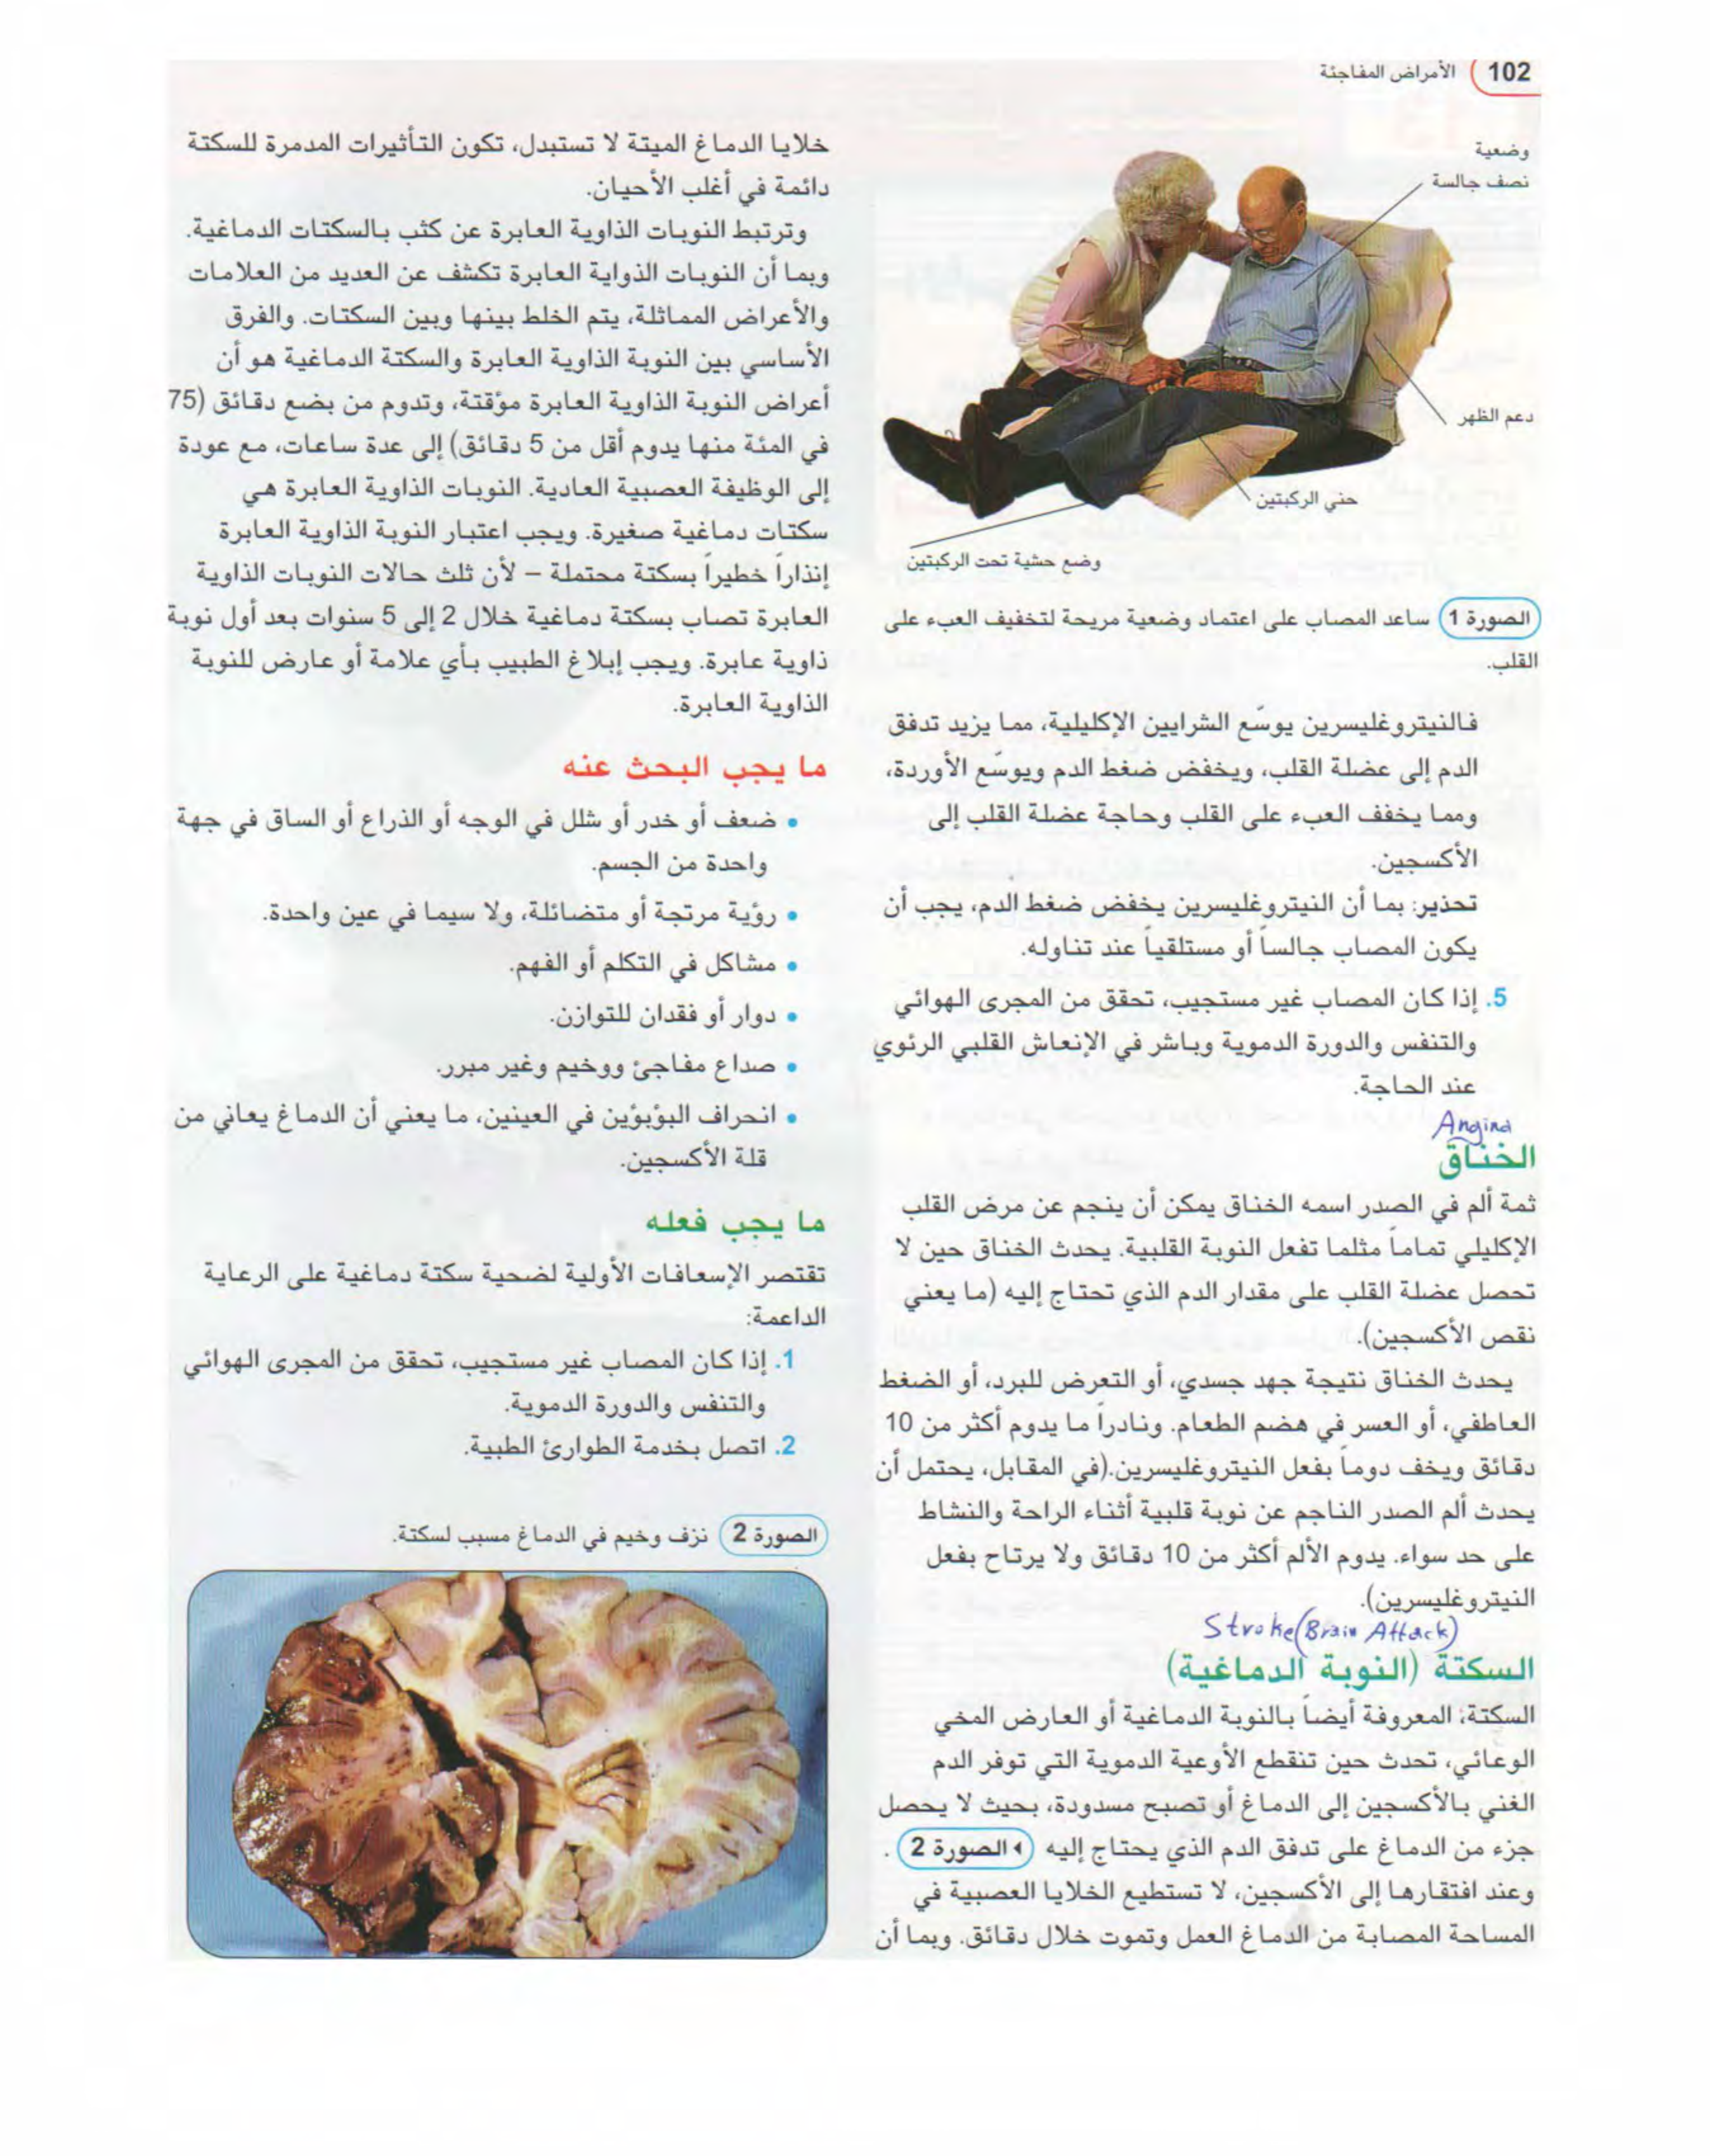 102 الأمراض المفاجئة
وضعية
نصف جالسة
دعم الظهر
حني الركبتين
وضع حشية تحت الركبتين
الصورة 1 ساعد المصاب على اعتماد وضعية مريحة لتخفيف العبء على
القلب.
فالنيتروغليسرين يوسّع الشرايين الإكليلية، مما يزيد تدفق
الدم إلى عضلة القلب، ويخفض ضغط الدم ويوسّع الأوردة،
ومما يخفف العبء على القلب وحاجة عضلة القلب إلى
الأكسجين.
تحذير: بما أن النيتروغليسرين يخفض ضغط الدم، يجب أن
يكون المصاب جالساً أو مستلقياً عند تناوله.
5. إذا كان المصاب غير مستجيب، تحقق من المجرى الهوائي
والتنفس والدورة الدموية وباشر في الإنعاش القلبي الرئوي
عند الحاجة.
Angina
الخناق
ثمة ألم في الصدر اسمه الخناق يمكن أن ينجم عن مرض القلب
الإكليلي تماماً مثلما تفعل النوبة القلبية. يحدث الخناق حين لا
تحصل عضلة القلب على مقدار الدم الذي تحتاج إليه (ما يعني
نقص الأكسجين).
يحدث الخناق نتيجة جهد جسدي، أو التعرض للبرد، أو الضغط
العاطفي، أو العسر في هضم الطعام. ونادراً ما يدوم أكثر من 10
دقائق ويخف دوماً بفعل النيتروغليسرين.(في المقابل، يحتمل أن
يحدث ألم الصدر الناجم عن نوبة قلبية أثناء الراحة والنشاط
على حد سواء. يدوم الألم أكثر من 10 دقائق ولا يرتاح بفعل
النيتروغليسرين).
Stroke (Brain Attack)
السكتة (النوبة الدماغية)
السكتة، المعروفة أيضاً بالنوبة الدماغية أو العارض المخي
الوعائي، تحدث حين تنقطع الأوعية الدموية التي توفر الدم
الغني بالأكسجين إلى الدماغ أو تصبح مسدودة، بحيث لا يحصل
جزء من الدماغ على تدفق الدم الذي يحتاج إليه الصورة 2 .
وعند افتقارها إلى الأكسجين، لا تستطيع الخلايا العصبية في
المساحة المصابة من الدماغ العمل وتموت خلال دقائق. وبما أن
خلايا الدماغ الميتة لا تستبدل، تكون التأثيرات المدمرة للسكتة
دائمة في أغلب الأحيان.
وترتبط النوبات الذاوية العابرة عن كثب بالسكتات الدماغية.
وبما أن النوبات الذواية العابرة تكشف عن العديد من العلامات
والأعراض المماثلة، يتم الخلط بينها وبين السكتات. والفرق
الأساسي بين النوبة الذاوية العابرة والسكتة الدماغية هو أن
أعراض النوبة الذاوية العابرة مؤقتة، وتدوم من بضع دقائق (75
في المئة منها يدوم أقل من 5 دقائق) إلى عدة ساعات، مع عودة
إلى الوظيفة العصبية العادية. النوبات الذاوية العابرة هي
سكتات دماغية صغيرة. ويجب اعتبار النوبة الذاوية العابرة
إنذاراً خطيراً بسكتة محتملة – لأن ثلث حالات النوبات الذاوية
العابرة تصاب بسكتة دماغية خلال 2 إلى 5 سنوات بعد أول نوبة
ذاوية عابرة. ويجب إبلاغ الطبيب بأي علامة أو عارض للنوبة
الذاوية العابرة.
ما يجب البحث عنه
• ضعف أو خدر أو شلل في الوجه أو الذراع أو الساق في جهة
واحدة من الجسم.
• رؤية مرتجة أو متضائلة، ولا سيما في عين واحدة.
• مشاكل في التكلم أو الفهم.
• دوار أو فقدان للتوازن.
• صداع مفاجئ ووخيم وغير مبرر.
• انحراف البؤبؤين في العينين، ما يعني أن الدماغ يعاني من
قلة الأكسجين.
ما يجب فعله
تقتصر الإسعافات الأولية لضحية سكتة دماغية على الرعاية
الداعمة:
1. إذا كان المصاب غير مستجيب، تحقق من المجرى الهوائي
والتنفس والدورة الدموية.
2. اتصل بخدمة الطوارئ الطبية.
الصورة 2 نزف وخيم في الدماغ مسبب لسكتة.